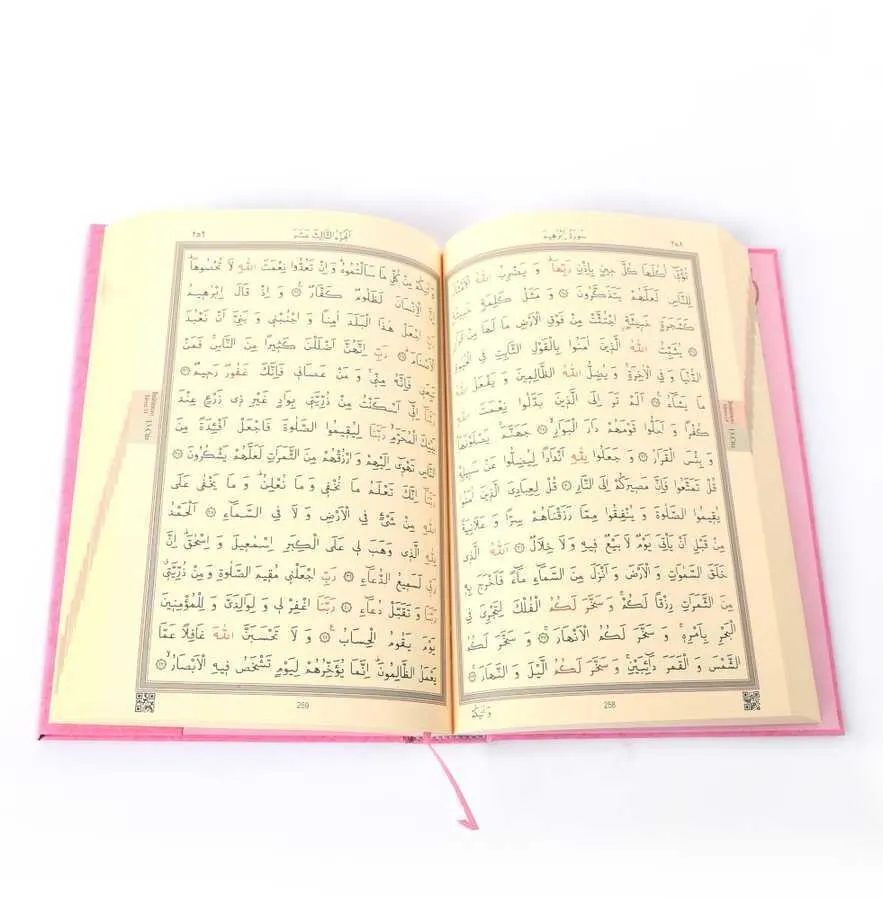 سُورَةُ اِبْرٰهِيمَ
تُؤْت۪ٓي اُكُلَهَا كُلَّ ح۪ينٍ بِاِذْنِ رَبِّهَاۜ وَ يَضْرِبُ اللّٰهُ الْاَمْثَالَ
لِلنَّاسِ لَعَلَّهُمْ يَتَذَكَّرُونَ ۝ وَ مَثَلُ كَلِمَةٍ خَب۪يثَةٍ
كَشَجَرَةٍ خَب۪يثَةٍۨ اجْتُثَّتْ مِنْ فَوْقِ الْاَرْضِ مَا لَهَا مِنْ
۝ يُثَبِّتُ اللّٰهُ الَّذ۪ينَ اٰمَنُوا بِالْقَوْلِ الثَّابِتِ فِي الْحَيٰوةِ
الدُّنْيَا وَ فِي الْاٰخِرَةِۚ وَ يُضِلُّ اللّٰهُ الظَّالِم۪ينَ وَ يَفْعَلُ اللّٰهُ
مَا يَشَٓاءُ۟ ۝ اَلَمْ تَرَ اِلَى الَّذ۪ينَ بَدَّلُوا نِعْمَتَ اللّٰهِ
كُفْرًا وَ اَحَلُّوا قَوْمَهُمْ دَارَ الْبَوَارِۙ ۝ جَهَنَّمَۚ يَصْلَوْنَهَاۜ
وَ بِئْسَ الْقَرَارُ ۝ وَ جَعَلُوا لِلّٰهِ اَنْدَادًا لِيُضِلُّوا عَنْ سَب۪يلِه۪ۜ
قُلْ تَمَتَّعُوا فَاِنَّ مَص۪يرَكُمْ اِلَى النَّارِ ۝ قُلْ لِعِبَادِيَ الَّذ۪ينَ اٰمَنُوا
يُق۪يمُوا الصَّلٰوةَ وَ يُنْفِقُوا مِمَّا رَزَقْنَاهُمْ سِرًّا وَ عَلَانِيَةً
مِنْ قَبْلِ اَنْ يَأْتِيَ يَوْمٌ لَا بَيْعٌ ف۪يهِ وَ لَا خِلَالٌ ۝ اَللّٰهُ الَّذ۪ي
خَلَقَ السَّمٰوَاتِ وَ الْاَرْضَ وَ اَنْزَلَ مِنَ السَّمَٓاءِ مَٓاءً فَاَخْرَجَ بِه۪
مِنَ الثَّمَرَاتِ رِزْقًا لَكُمْۚ وَ سَخَّرَ لَكُمُ الْفُلْكَ لِتَجْرِيَ فِي
الْبَحْرِ بِاَمْرِه۪ۚ وَ سَخَّرَ لَكُمُ الْاَنْهَارَۚ ۝ وَ سَخَّرَ لَكُمُ
الشَّمْسَ وَ الْقَمَرَ دَٓائِبَيْنِۚ وَ سَخَّرَ لَكُمُ الَّيْلَ وَ النَّهَارَۚ ۝
258
٢٥٩
اَلْجُزْءُ الثَّالِثَ عَشَرَ
مِنْ كُلِّ مَا سَاَلْتُمُوهُۜ وَ اِنْ تَعُدُّوا نِعْمَتَ اللّٰهِ لَا تُحْصُوهَاۜ
الْاِنْسَانَ لَظَلُومٌ كَفَّارٌ۟ ۝ وَ اِذْ قَالَ اِبْرٰه۪يمُ
اجْعَلْ هٰذَا الْبَلَدَ اٰمِنًا وَ اجْنُبْن۪ي وَ بَنِيَّ اَنْ نَعْبُدَ
الْاَصْنَامَۜ ۝ رَبِّ اِنَّهُنَّ اَضْلَلْنَ كَث۪يرًا مِنَ النَّاسِۚ فَمَنْ
فَاِنَّهُ مِنّ۪يۚ وَ مَنْ عَصَان۪ي فَاِنَّكَ غَفُورٌ رَح۪يمٌ ۝
رَبَّنَٓا اِنّ۪ٓي اَسْكَنْتُ مِنْ ذُرِّيَّت۪ي بِوَادٍ غَيْرِ ذ۪ي زَرْعٍ عِنْدَ
بَيْتِكَ الْمُحَرَّمِۙ رَبَّنَا لِيُق۪يمُوا الصَّلٰوةَ فَاجْعَلْ اَفْـِٔدَةً مِنَ
النَّاسِ تَهْو۪ٓي اِلَيْهِمْ وَ ارْزُقْهُمْ مِنَ الثَّمَرَاتِ لَعَلَّهُمْ يَشْكُرُونَ ۝
رَبَّنَٓا اِنَّكَ تَعْلَمُ مَا نُخْف۪ي وَ مَا نُعْلِنُۜ وَ مَا يَخْفٰى عَلَى
اللّٰهِ مِنْ شَيْءٍ فِي الْاَرْضِ وَ لَا فِي السَّمَٓاءِ ۝ اَلْحَمْدُ
لِلّٰهِ الَّذ۪ي وَهَبَ ل۪ي عَلَى الْكِبَرِ اِسْمٰع۪يلَ وَ اِسْحٰقَۜ اِنَّ
رَبّ۪ي لَسَم۪يعُ الدُّعَٓاءِ ۝ رَبِّ اجْعَلْن۪ي مُق۪يمَ الصَّلٰوةِ وَ مِنْ ذُرِّيَّت۪يۗ
رَبَّنَا وَ تَقَبَّلْ دُعَٓاءِ ۝ رَبَّنَا اغْفِرْ ل۪ي وَ لِوَالِدَيَّ وَ لِلْمُؤْمِن۪ينَ
يَوْمَ يَقُومُ الْحِسَابُ۟ ۝ وَ لَا تَحْسَبَنَّ اللّٰهَ غَافِلًا عَمَّا
يَعْمَلُ الظَّالِمُونَۜ اِنَّمَا يُؤَخِّرُهُمْ لِيَوْمٍ تَشْخَصُ ف۪يهِ الْاَبْصَارُۙ ۝
259